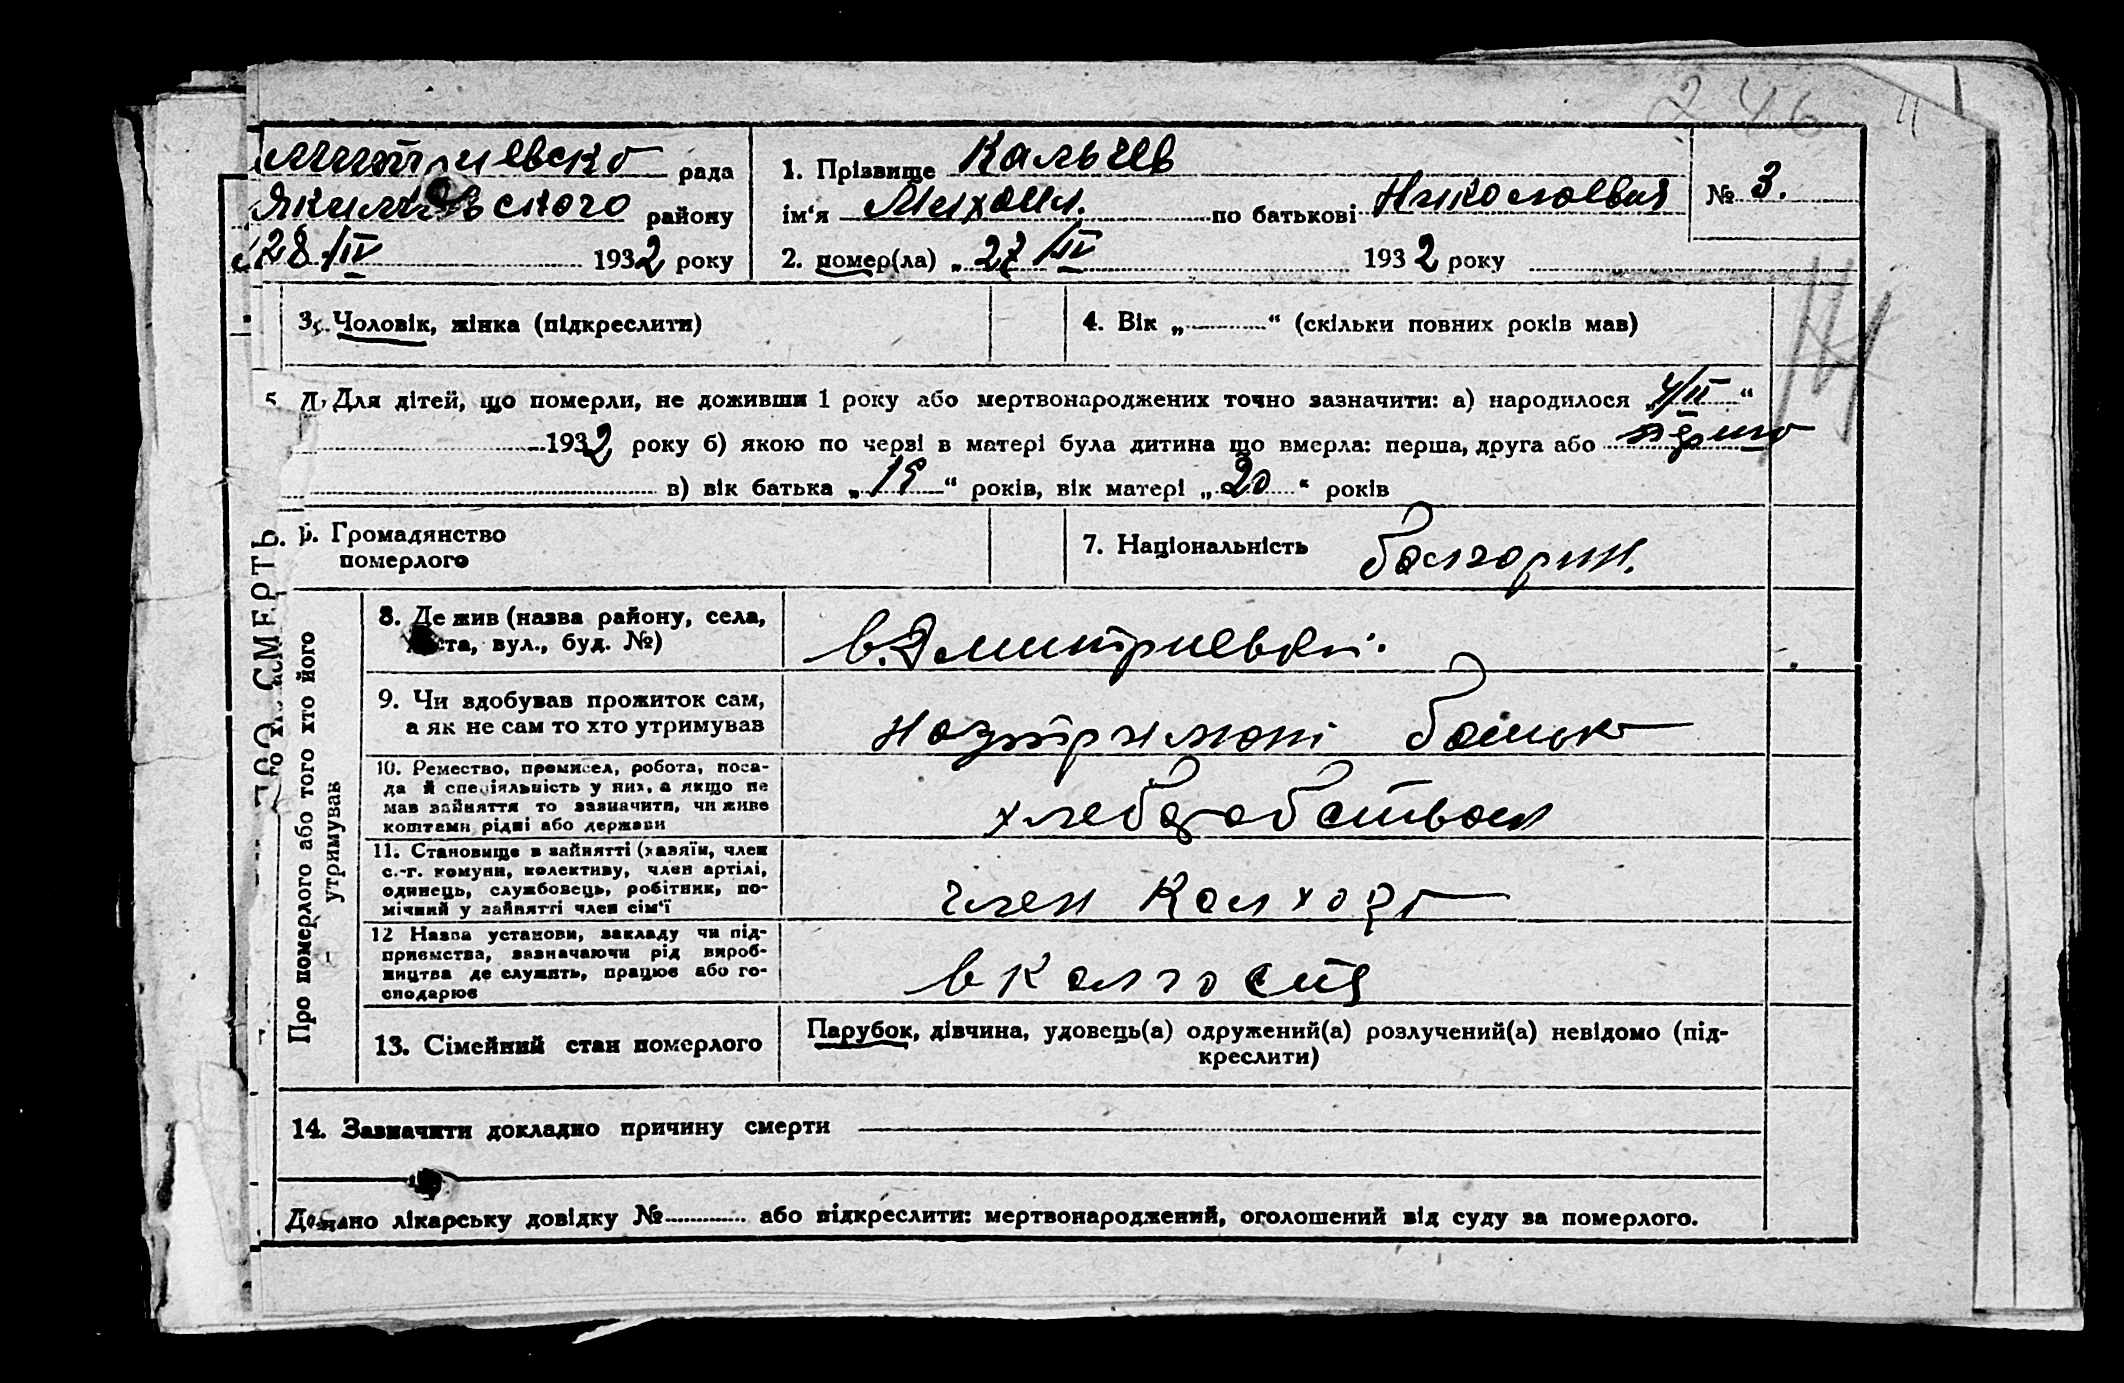 246
митриевско рада
Якимовского району
28/IV 1932 року
1. Прізвище Кальчев
ім'я Михаил. по батькові Николаевич
№ 3.
2. помер(ла) „27/IV 1932 року
3. Чоловік, жінка (підкреслити)
4. Вік „ “ (скільки повних років мав)
5. Для дітей, що померли, не доживши 1 року або мертвонароджених точно зазначити: а) народилося „4/II“
1932 року б) якою по черзі в матері була дитина що вмерла: перша, друга або
в) вік батька „19“ років, вік матері „20“ років
6. Громадянство
померлого
7. Національність болгорин.
СМЕРТЬ
Про померлого або того хто його
утримував
8. Де жив (назва району, села,
ста, вул., буд. №)
в. Дмитриевки.
9. Чи здобував прожиток сам,
а як не сам то хто утримував
наутримані батько
10. Ремество, промисел, робота, поса-
да й спеціяльність у них, а якщо не
мав зайняття то зазначити, чи живе
коштами рідні або держави
хлеборобством
11. Становище в зайнятті (хазяїн, член
с.-г. комуни, колективу, член артілі,
одинець, службовець, робітник, по-
мічний у зайнятті член сім'ї
член Колхоза
12 Назва установи, закладу чи під-
приємства, зазначаючи рід вироб-
ництва де служить, працює або го-
сподарює
в колгоспу
13. Сімейний стан померлого
Парубок, дівчина, удовець(а) одружений(а) розлучений(а) невідомо (під-
креслити)
14. Зазначити докладно причину смерти
Додано лікарську довідку № або підкреслити: мертвонароджений, оголошений від суду за померлого.